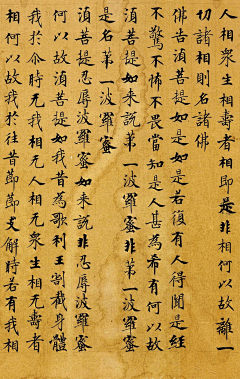 人相眾生相壽者相即是非相何以故離一
切諸相則名諸佛
佛告湏菩提如是如是若復有人得聞是經
不驚不怖不畏當知是人甚為希有何以故
湏菩提如来說第一波羅蜜非第一波羅蜜
是名第一波羅蜜
湏菩提忍辱波羅蜜如来說非忍辱波羅蜜
何以故湏菩提如我昔為歌利王割截身體
我於尒時无我相无人相无眾生相无壽者
相何以故我於往昔節節支解時若有我相